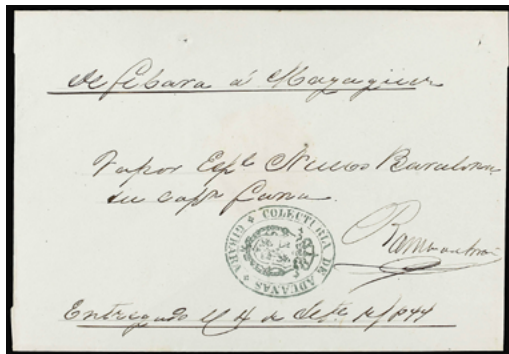 de Gibara á Mayagüez
Vapor Esp.l Nuevo Barcelona
su cap.n Cana
COLECTURIA DE ADUANAS
GIBARA
Entregado el 4 de Sete